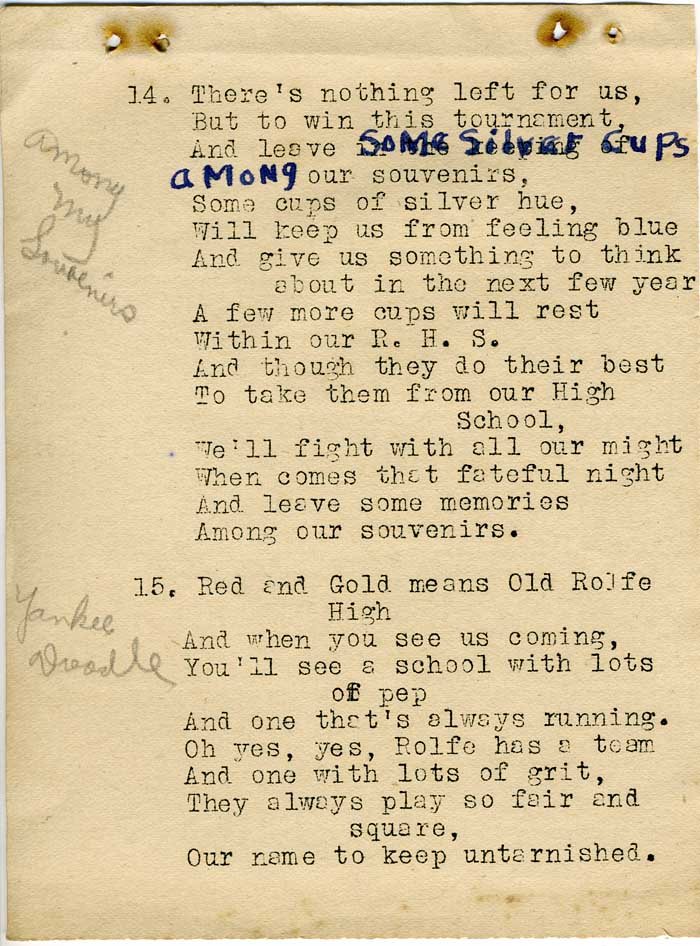 14. There's nothing left for us,
But to win this tournament,
And leave Some Silver Cups
aMONg our souvenirs,
Some cups of silver hue,
Will keep us from feeling blue
And give us something to think
about in the next few year
A few more cups will rest
Within our R. H. S.
And though they do their best
To take them from our High
School,
We'll fight with all our might
When comes that fateful night
And leave some memories
Among our souvenirs.
Among
My
Souvenirs
15. Red and Gold means Old Rolfe
High
And when you see us coming,
You'll see a school with lots
of pep
And one that's always running.
Oh yes, yes, Rolfe has a team
And one with lots of grit,
They always play so fair and
square,
Our name to keep untarnished.
Yankee
Doodle